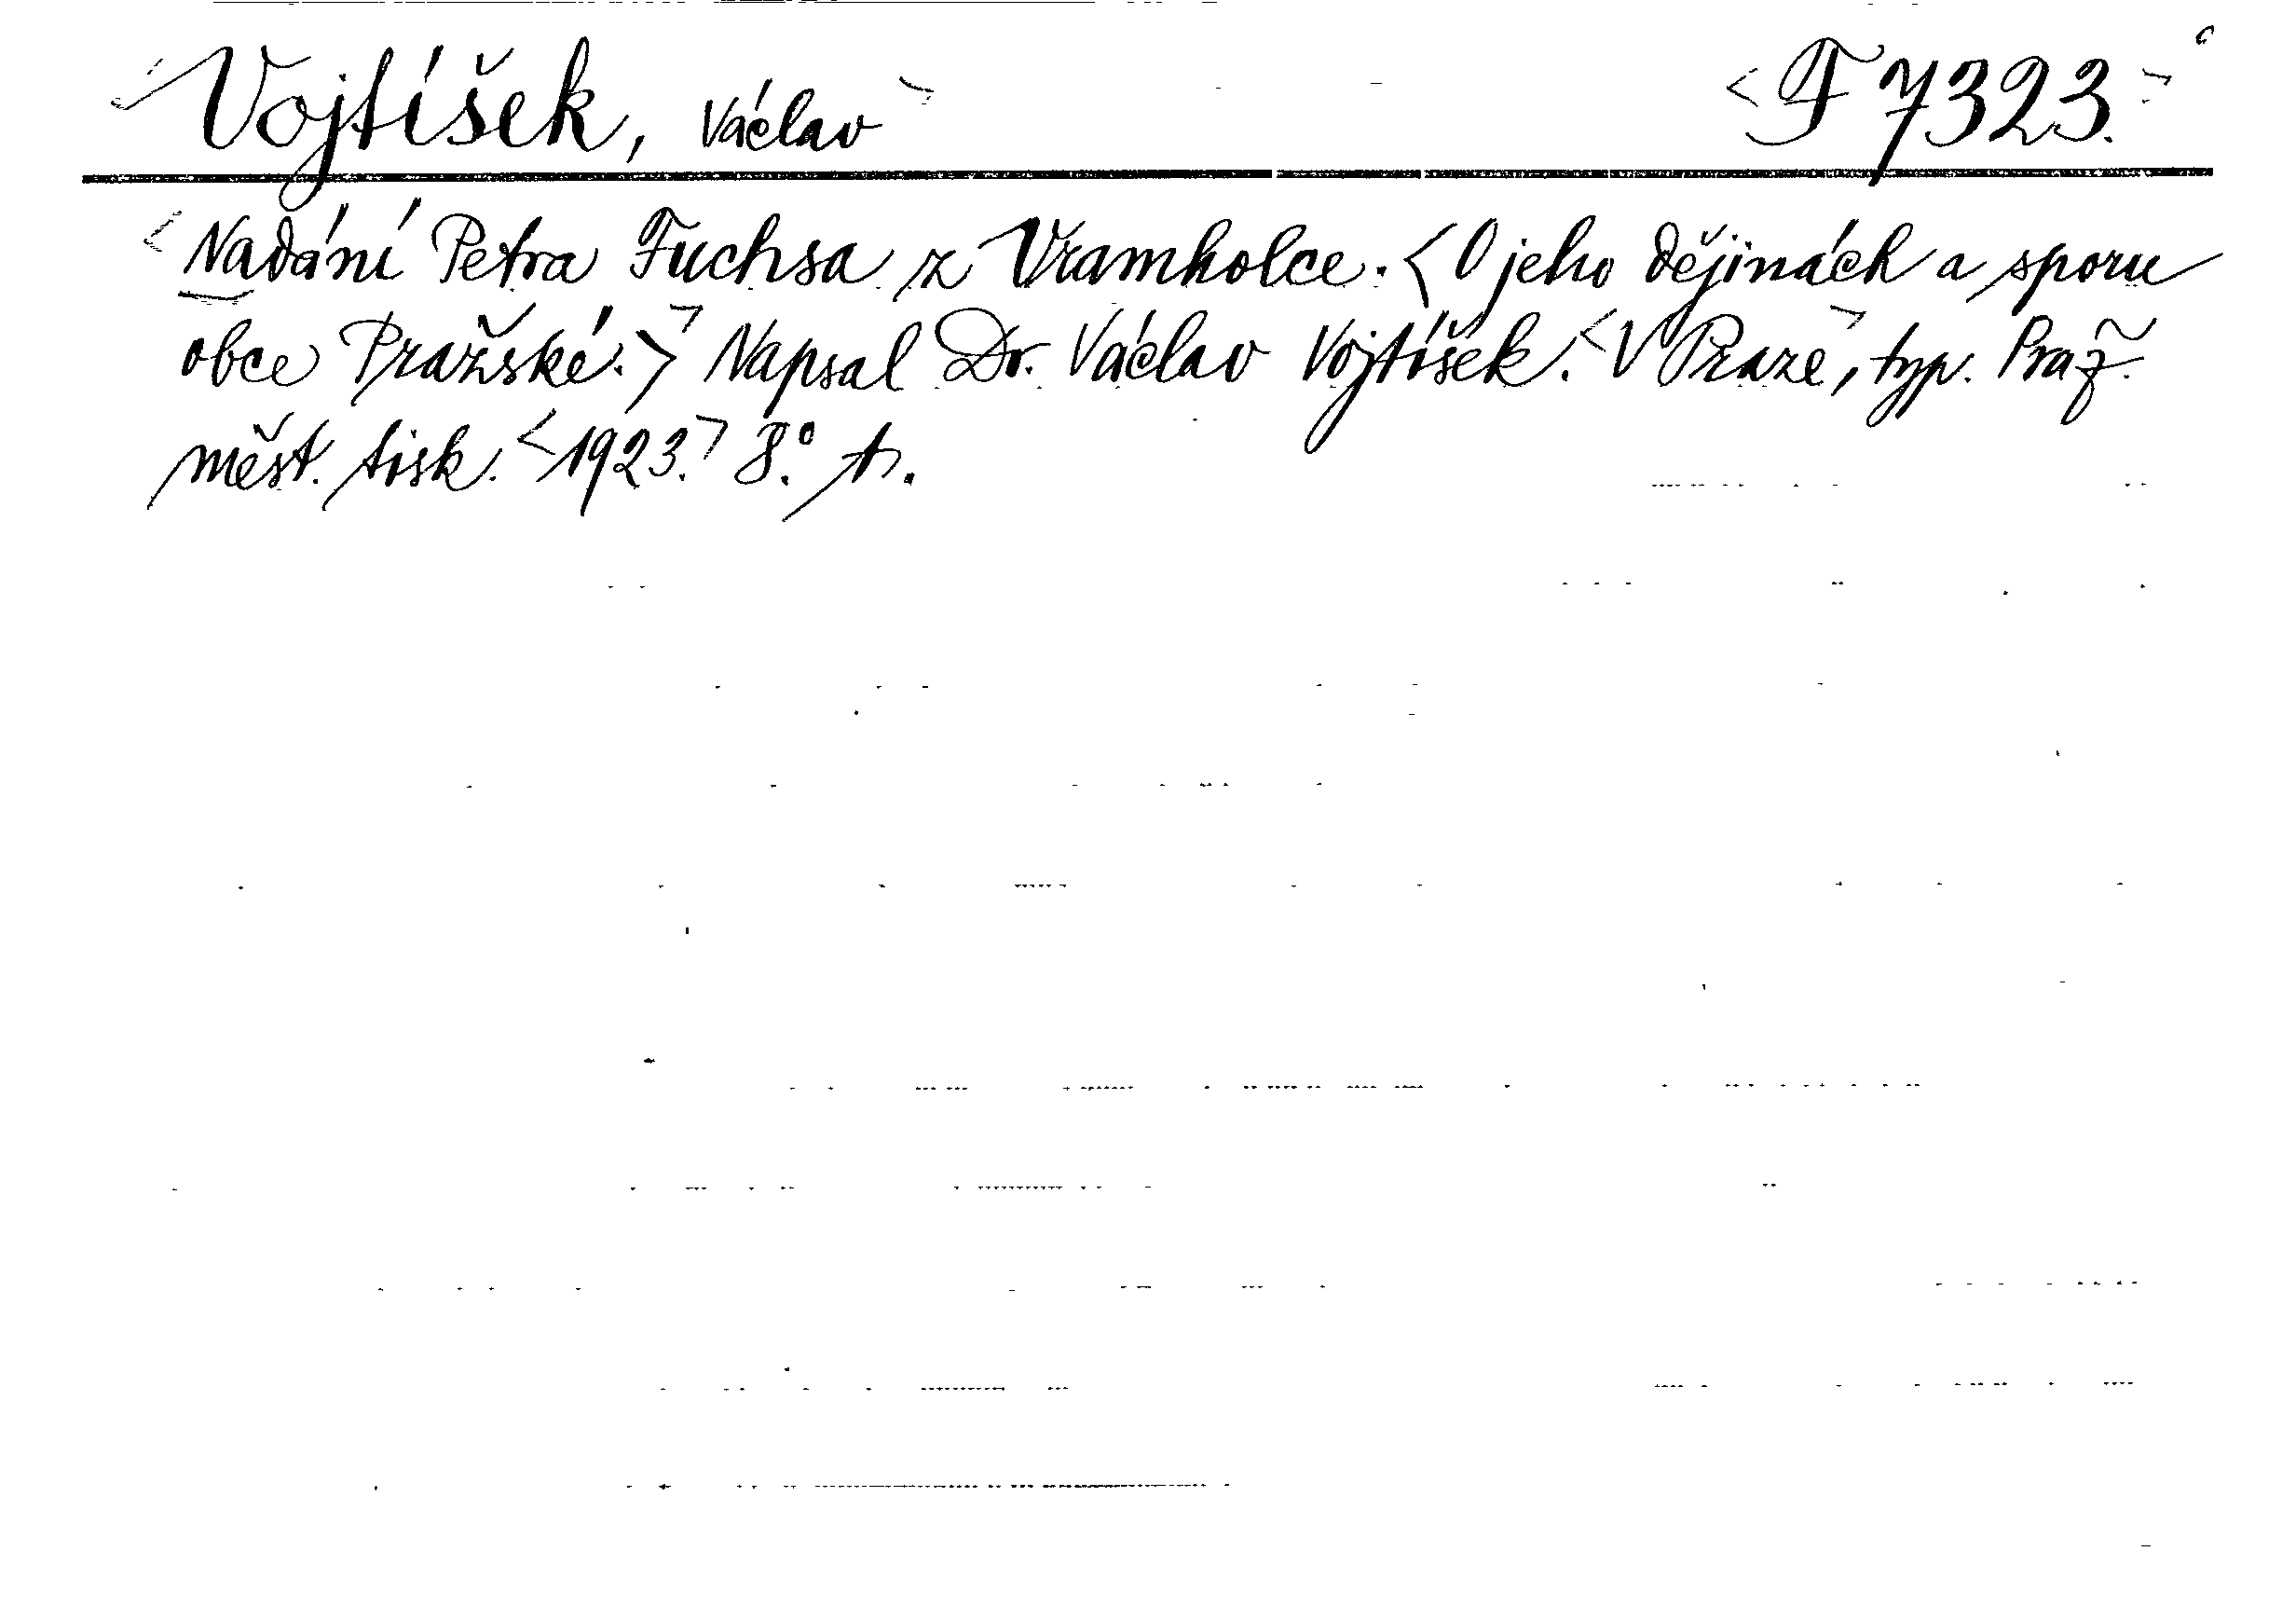 <Vojtíšek, Václav> <F 7323.>
<Nadání Petra Fuchsa z Vramholce. <O jeho dějinách a sporu
obce Pražské.>> Napsal Dr. Václav Vojtíšek. <V Praze>, typ. Praž.
měst. tisk. <1923.> 8.°